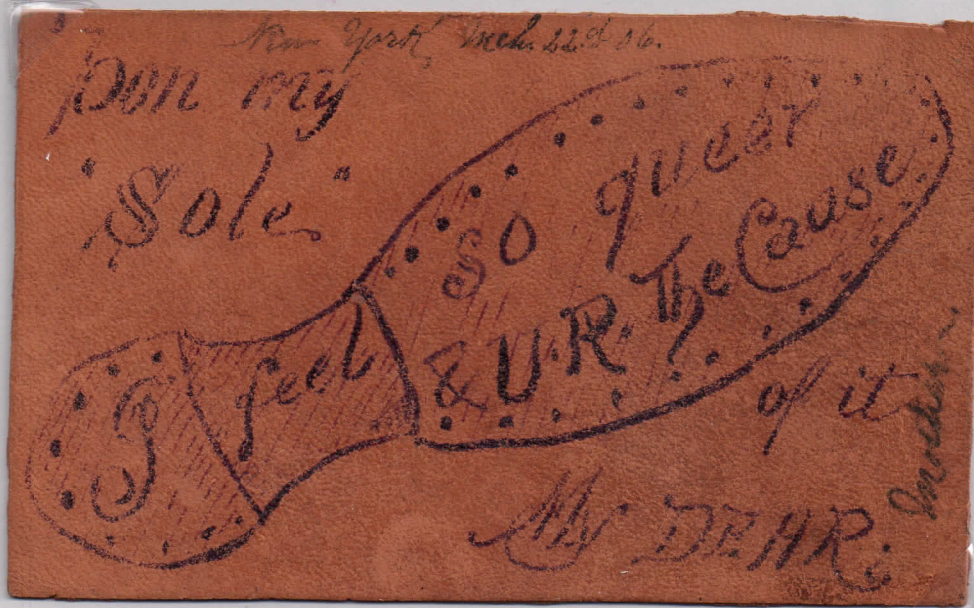 New York Mch. 22d 06.
'Pon my
"Sole"
I feel so queer
& U.R. The Cause
of it
My DEAR.
Mother